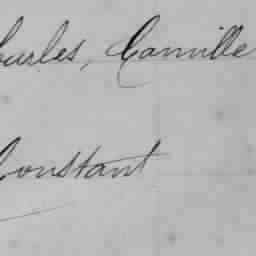 Charles, Camille
Constant